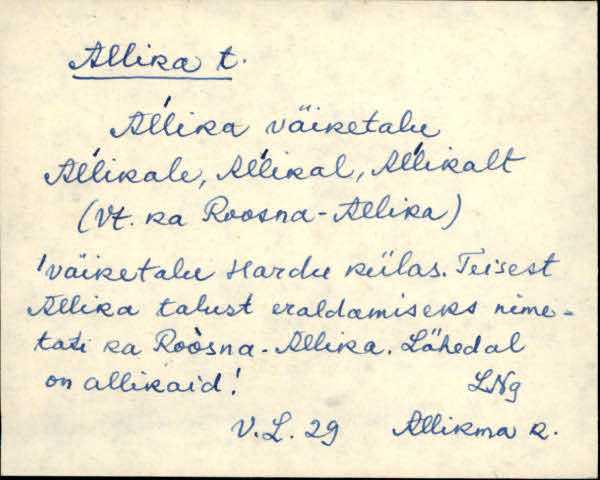 Allika t.
Al'lika väiketalu
Al'likale, Al'likal, Al'likalt
(Vt. ka Roosna-Allika)
'väiketalu Hardu külas. Teisest
Allika talust eraldamiseks nime-
tati ka Roòsna-Allika. Lähedal
on allikaid! LNg
V.L. 29 Allikma k.